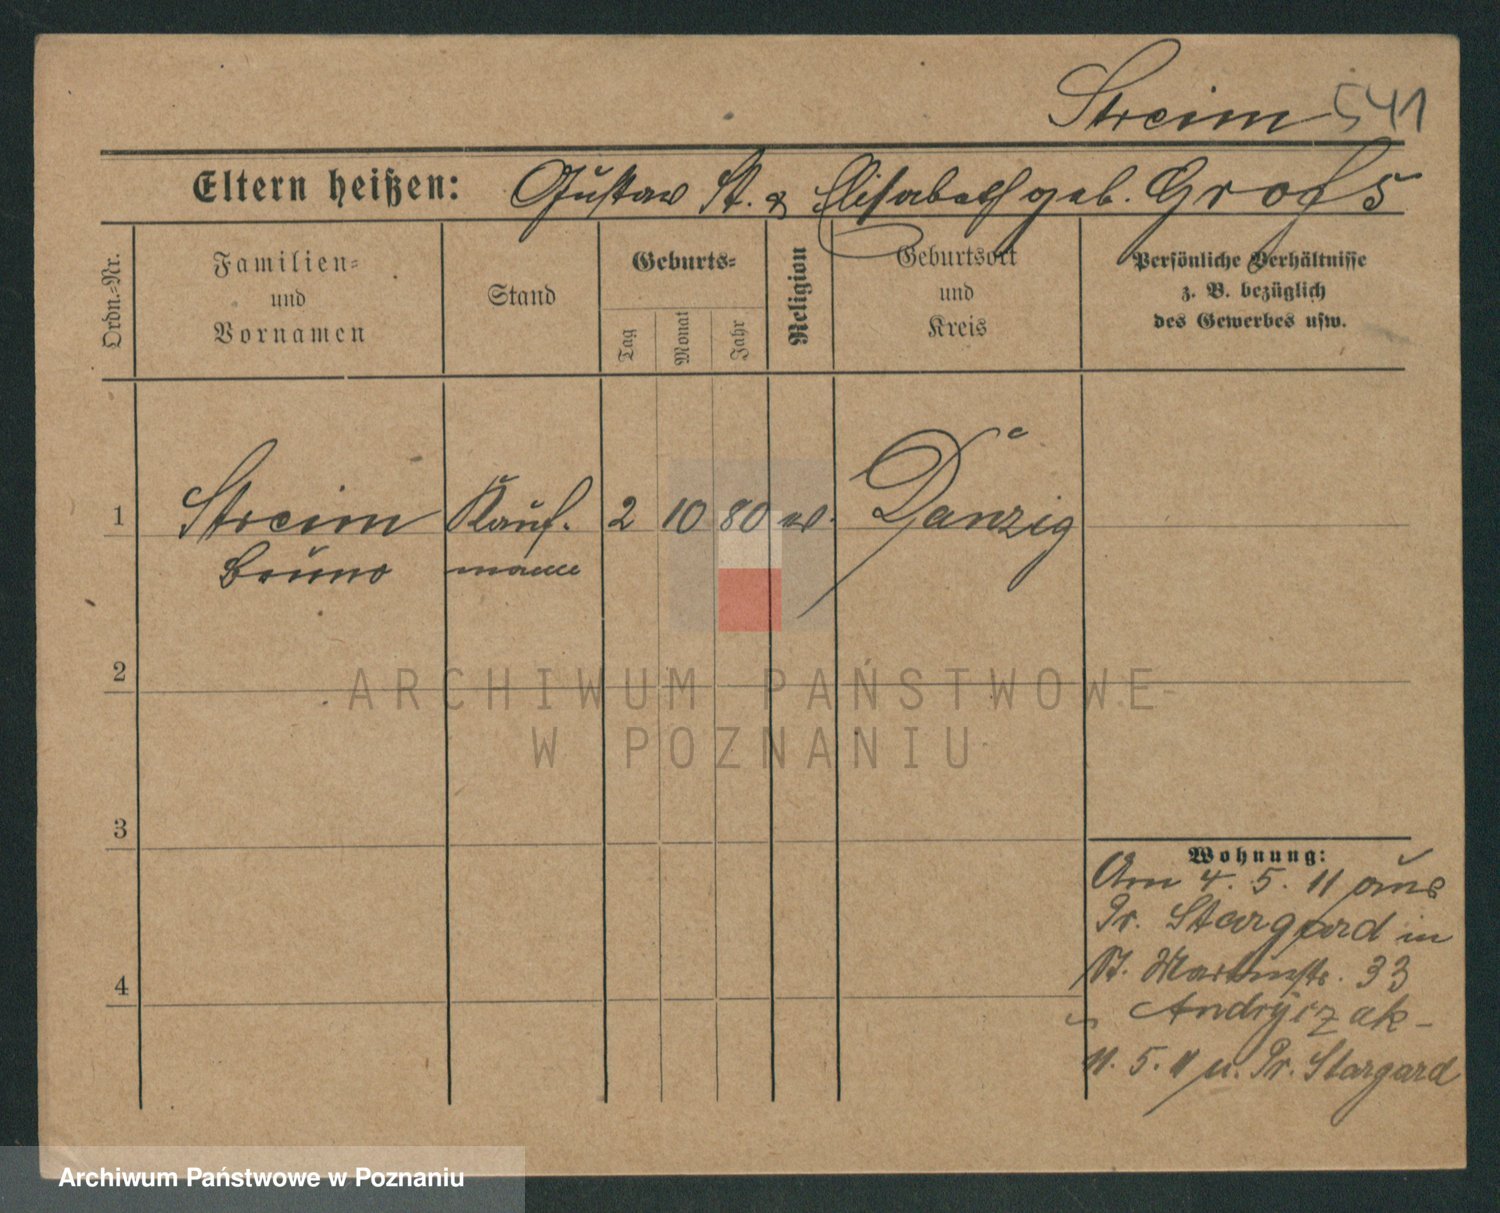 Streim 541
Eltern heißen: Gustav St. & Elisabeth geb. Groß
Ordn.-Nr.
Familien-
und
Vornamen
Stand
Geburts-
Tag
Monat
Jahr
Religion
Geburtsort
und
Kreis
Persönliche Verhältnisse
z. B. bezüglich
des Gewerbes usw.
1 Streim Kauf- 2 10 80 Danzig
Bruno mann
2
3
4
Wohnung:
Am 4. 5. 11 aus
Pr. Stargard in
St. Martinstr. 33
Andryczak
11. 5. 11 n. Pr. Stargard
ARCHIWUM PAŃSTWOWE
W POZNANIU
Archiwum Państwowe w Poznaniu